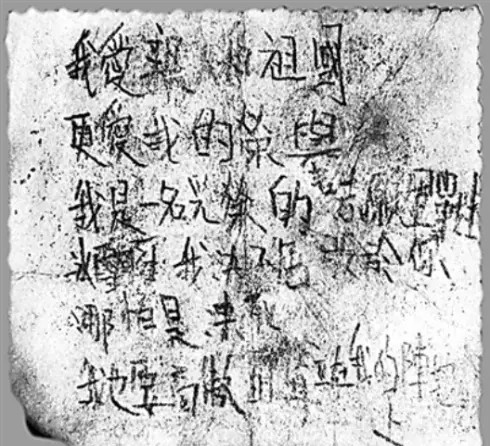 我愛親人和祖國
更愛我的榮譽
我是一名光榮的志願軍戰士
冰雪啊我決不屈服於你
哪怕是凍死
我也要高傲的 立在我的陣地
上